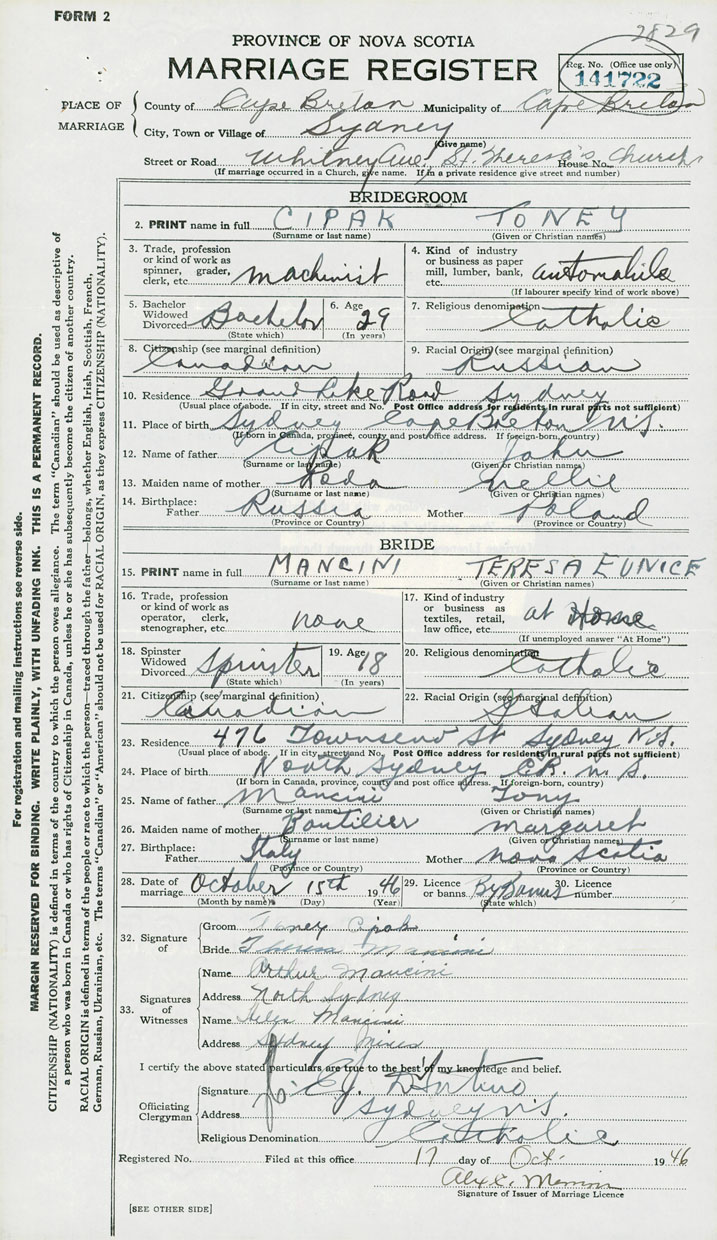 FORM 2
2829
PROVINCE OF NOVA SCOTIA
MARRIAGE REGISTER
Reg. No. (Office use only)
141722
PLACE OF MARRIAGE
County of Cape Breton Municipality of Cape Breton
City, Town or Village of Sydney
(Give name)
Street or Road Whitney Ave. St. Theresa's Church House No.
(If marriage occurred in a Church, give name. If in a private residence give street and number)
BRIDEGROOM
2. PRINT name in full CIPAK TONEY
(Surname or last name) (Given or Christian names)
3. Trade, profession or kind of work as spinner, grader, clerk, etc. machinist
4. Kind of industry or business as paper mill, lumber, bank, etc. automobile
(If labourer specify kind of work above)
5. Bachelor Widowed Divorced Bachelor (State which)
6. Age 29 (In years)
7. Religious denomination Catholic
8. Citizenship (see marginal definition) Canadian
9. Racial Origin (see marginal definition) Russian
10. Residence Grand Lake Road Sydney
(Usual place of abode. If in city, street and No. Post Office address for residents in rural parts not sufficient)
11. Place of birth Sydney Cape Breton N.S.
(If born in Canada, province, county and post office address. If foreign-born, country)
12. Name of father Cipak John
(Surname or last name) (Given or Christian names)
13. Maiden name of mother Nellie
(Surname or last name) (Given or Christian names)
14. Birthplace: Father Russia Mother Poland
(Province or Country) (Province or Country)
BRIDE
15. PRINT name in full MANCINI TERESA EUNICE
(Surname or last name) (Given or Christian names)
16. Trade, profession or kind of work as operator, clerk, stenographer, etc. none
17. Kind of industry or business as textiles, retail, law office, etc. at Home
(If unemployed answer "At Home")
18. Spinster Widowed Divorced Spinster (State which)
19. Age 18 (In years)
20. Religious denomination Catholic
21. Citizenship (see marginal definition) Canadian
22. Racial Origin (see marginal definition) Italian
23. Residence 476 Townsend St Sydney N.S.
(Usual place of abode. If in city street and No. Post Office address for residents in rural parts not sufficient)
24. Place of birth North Sydney C.B. N.S.
(If born in Canada, province, county and post office address. If foreign-born, country)
25. Name of father Mancini Tony
(Surname or last name) (Given or Christian names)
26. Maiden name of mother Boutilier Margaret
(Surname or last name) (Given or Christian names)
27. Birthplace: Father Italy Mother Nova Scotia
(Province or Country) (Province or Country)
28. Date of marriage October 15th 1946
(Month by name) (Day) (Year)
29. Licence or banns By Banns (State which)
30. Licence number
32. Signature of
Groom Toney Cipak
Bride Theresa Mancini
33. Signatures of Witnesses
Name Arthur Mancini
Address North Sydney
Name Helen Mancini
Address Sydney Mines
I certify the above stated particulars are true to the best of my knowledge and belief.
Officiating Clergyman
Signature
Address Sydney N.S.
Religious Denomination Catholic
Registered No. Filed at this office 17 day of Oct. 1946
Signature of Issuer of Marriage Licence
[SEE OTHER SIDE]
For registration and mailing instructions see reverse side.
MARGIN RESERVED FOR BINDING. WRITE PLAINLY, WITH UNFADING INK. THIS IS A PERMANENT RECORD.
CITIZENSHIP (NATIONALITY) is defined in terms of the country to which the person owes allegiance. The term "Canadian" should be used as descriptive of
a person who was born in Canada or who has rights of Citizenship in Canada, unless he or she has subsequently become the citizen of another country.
RACIAL ORIGIN is defined in terms of the people or race to which the person—traced through the father—belongs, whether English, Irish, Scottish, French,
German, Russian, Ukrainian, etc. The terms "Canadian" or "American" should not be used for RACIAL ORIGIN, as they express CITIZENSHIP (NATIONALITY).